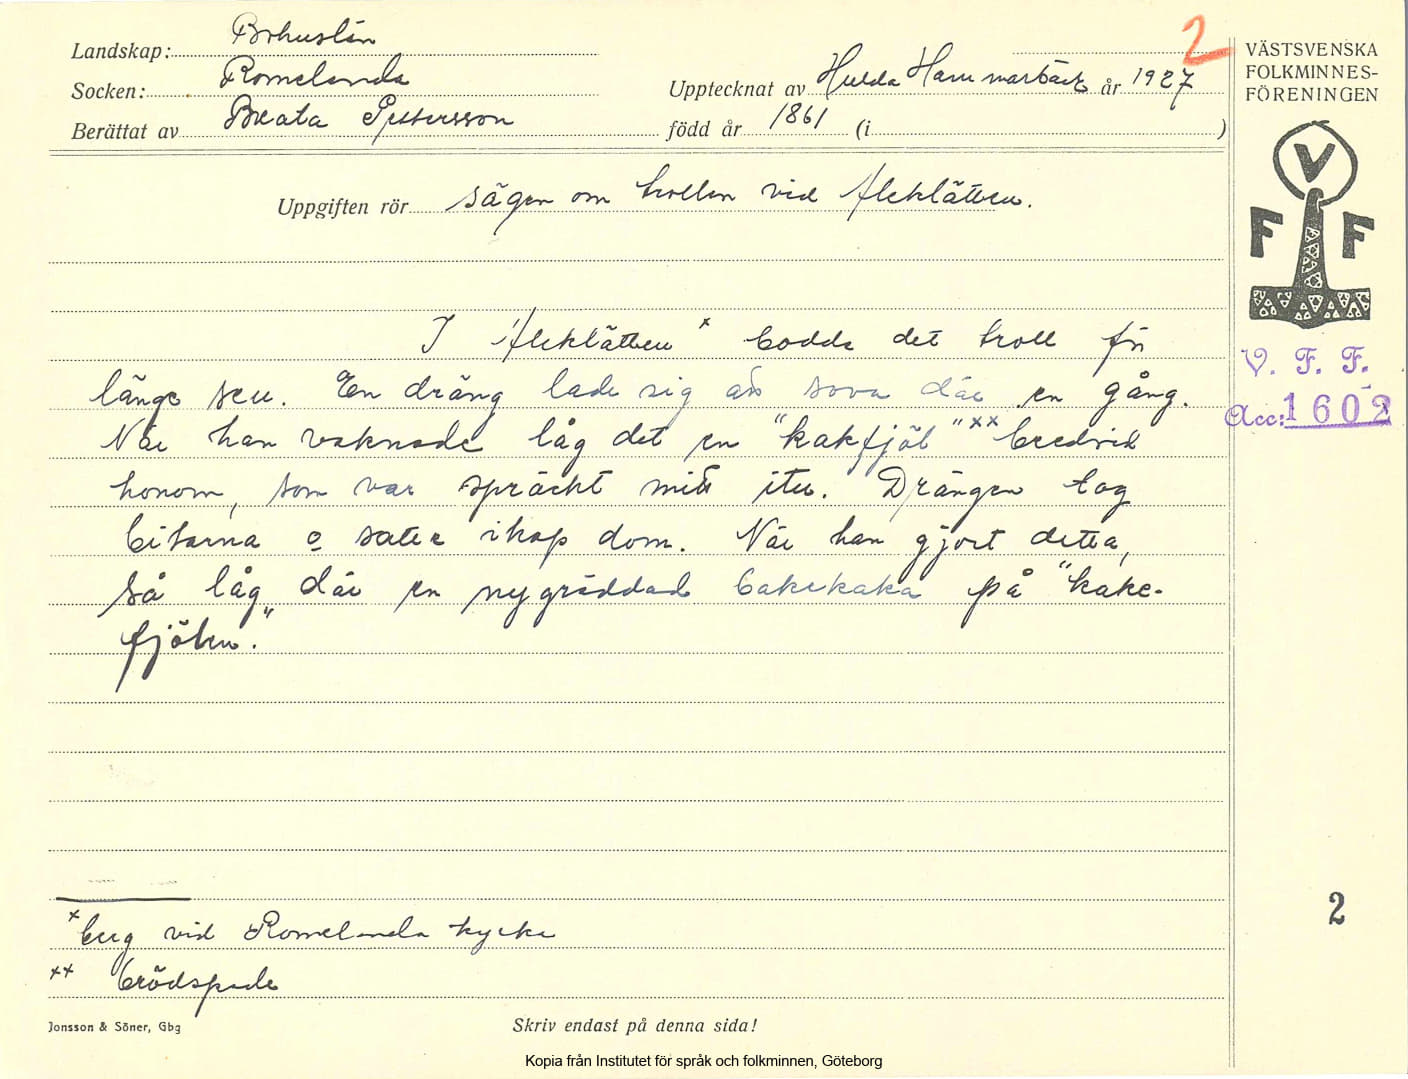 Landskap: Bohuslän
Socken: Romelanda
Upptecknat av Hulda Hammarbäck år 1927
Berättat av Beata Pettersson född år 1861 (i )
2
Uppgiften rör sägen om trollen vid Aleklätten.
I Aleklätten x bodde det troll för
länge seu. En dräng lade sig att sova där en gång.
När han vaknade låg det en "kakfjöl" xx bredvid
honom, som var spräckt mitt itu. Drängen tog
bitarna o satte ihop dom. När han gjort detta,
så låg där en nygräddad bakekaka på "kake-
fjölen."
x berg vid Romelanda kyrka
xx brödspade
Jonsson & Söner, Gbg
Skriv endast på denna sida!
Kopia från Institutet för språk och folkminnen, Göteborg
VÄSTSVENSKA
FOLKMINNES-
FÖRENINGEN
V
F F
V. F. F.
Acc: 1602
2